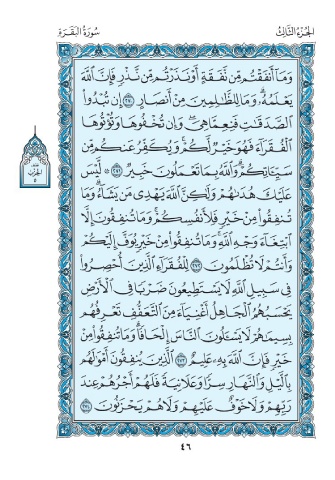 الجزء الثالث
سورة البقرة
وَمَآ أَنفَقْتُم مِّن نَّفَقَةٍ أَوْ نَذَرْتُم مِّن نَّذْرٍ فَإِنَّ ٱللَّهَ
يَعْلَمُهُۥ ۗ وَمَا لِلظَّٰلِمِينَ مِنْ أَنصَارٍ ۝٢٧٠ إِن تُبْدُوا۟
ٱلصَّدَقَٰتِ فَنِعِمَّا هِىَ ۖ وَإِن تُخْفُوهَا وَتُؤْتُوهَا
ٱلْفُقَرَآءَ فَهُوَ خَيْرٌ لَّكُمْ ۚ وَيُكَفِّرُ عَنكُم مِّن
سَيِّـَٔاتِكُمْ ۗ وَٱللَّهُ بِمَا تَعْمَلُونَ خَبِيرٌ ۝٢٧١ ۞ لَّيْسَ
عَلَيْكَ هُدَىٰهُمْ وَلَٰكِنَّ ٱللَّهَ يَهْدِى مَن يَشَآءُ ۗ وَمَا
تُنفِقُوا۟ مِنْ خَيْرٍ فَلِأَنفُسِكُمْ ۚ وَمَا تُنفِقُونَ إِلَّا
ٱبْتِغَآءَ وَجْهِ ٱللَّهِ ۚ وَمَا تُنفِقُوا۟ مِنْ خَيْرٍ يُوَفَّ إِلَيْكُمْ
وَأَنتُمْ لَا تُظْلَمُونَ ۝٢٧٢ لِلْفُقَرَآءِ ٱلَّذِينَ أُحْصِرُوا۟
فِى سَبِيلِ ٱللَّهِ لَا يَسْتَطِيعُونَ ضَرْبًا فِى ٱلْأَرْضِ
يَحْسَبُهُمُ ٱلْجَاهِلُ أَغْنِيَآءَ مِنَ ٱلتَّعَفُّفِ تَعْرِفُهُم
بِسِيمَٰهُمْ لَا يَسْـَٔلُونَ ٱلنَّاسَ إِلْحَافًا ۗ وَمَا تُنفِقُوا۟ مِنْ
خَيْرٍ فَإِنَّ ٱللَّهَ بِهِۦ عَلِيمٌ ۝٢٧٣ ٱلَّذِينَ يُنفِقُونَ أَمْوَٰلَهُم
بِٱلَّيْلِ وَٱلنَّهَارِ سِرًّا وَعَلَانِيَةً فَلَهُمْ أَجْرُهُمْ عِندَ
رَبِّهِمْ وَلَا خَوْفٌ عَلَيْهِمْ وَلَا هُمْ يَحْزَنُونَ ۝٢٧٤
٤٦